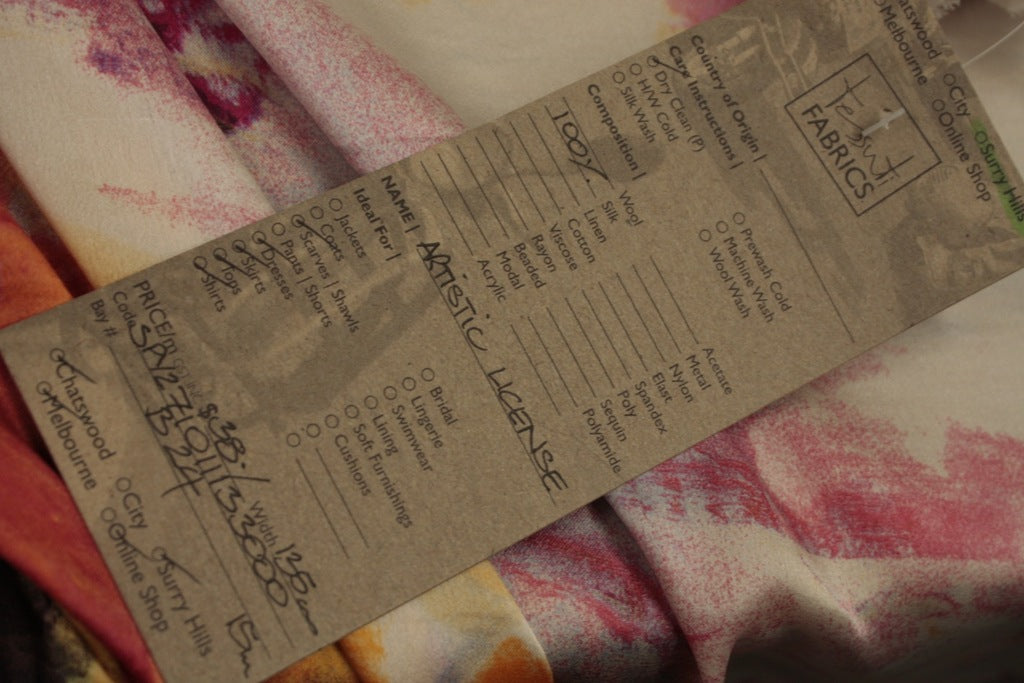 tessuti
FABRICS
atswood
City
Surry Hills
Melbourne
Online Shop
Country of Origin |
Care Instructions |
Dry Clean (P)
Prewash Cold
H/W Cold
Machine Wash
Silk Wash
Wool Wash
Composition |
Wool
Acetate
100% Silk
Metal
Linen
Nylon
Cotton
Elast
Viscose
Spandex
Rayon
Poly
Beaded
Sequin
Modal
Polyamide
Acrylic
NAME | ARTISTIC LICENSE
Ideal For |
Jackets
Bridal
Coats
Lingerie
Scarves | Shawls
Swimwear
Pants | Shorts
Lining
Dresses
Soft Furnishings
Skirts
Cushions
Tops
Shirts
PRICE/m $38./ Width 135cm
Code SPV271011133000
Bay # B24
15m
Chatswood
City
Surry Hills
Melbourne
Online Shop